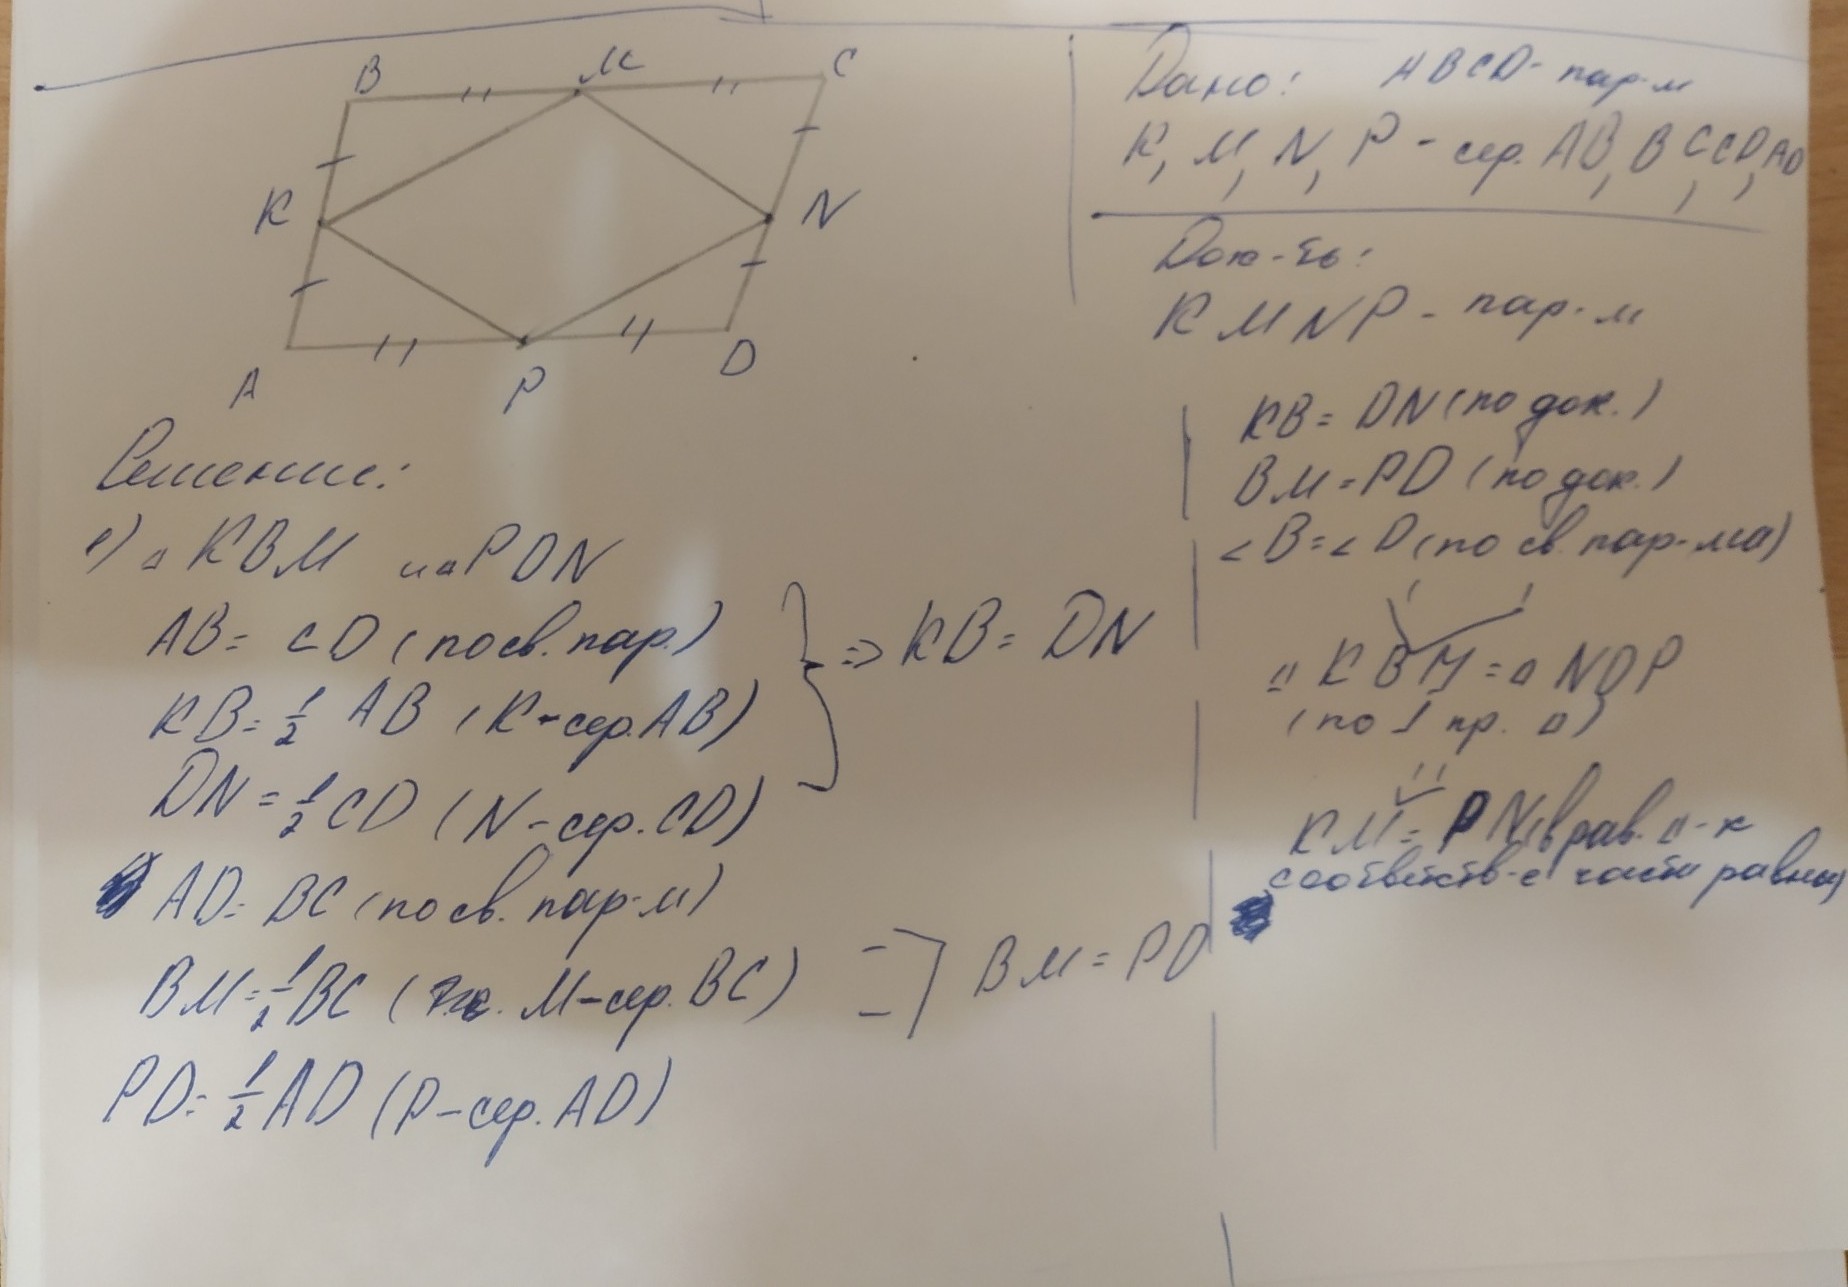 B M C
K N
A P D
Дано: ABCD - пар-м
K, M, N, P - сер. AB, BC, CD, AD
Док-ть:
KMNP - пар-м
Решение:
1) △ KBM и △ PDN
AB = CD (по св. пар.)
KB = 1/2 AB (K - сер. AB)
DN = 1/2 CD (N - сер. CD)
⇒ KB = DN
AD = BC (по св. пар-м)
BM = 1/2 BC (т.к. M - сер. BC)
PD = 1/2 AD (P - сер. AD)
⇒ BM = PD
KB = DN (по док.)
BM = PD (по док.)
∠B = ∠D (по св. пар-ма)
△ KBM = △ NDP
(по 1 пр. △)
KM = PN (в рав. △-к
соответств-е части равны)